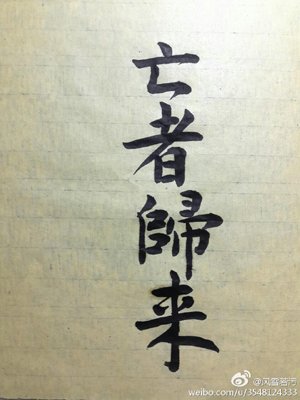 亡者歸来
weibo.com/u/3548124333